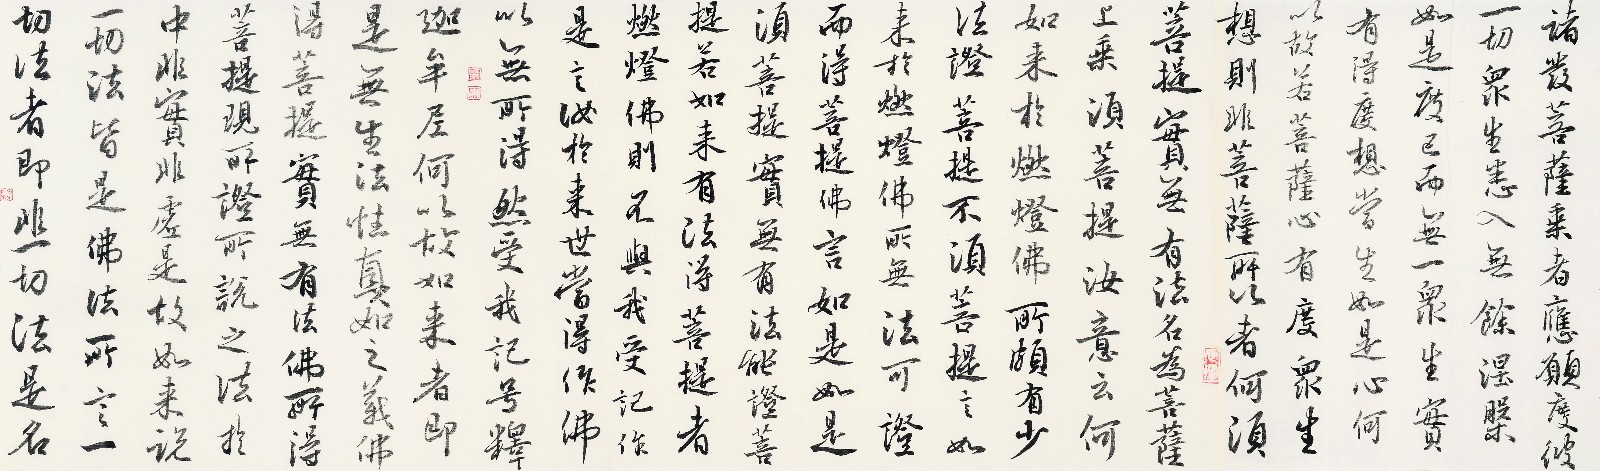 諸發菩薩乘者應願度彼
一切眾生悉入無餘涅槃
如是度已而無一眾生實
有得度想當生如是心何
以故若菩薩心有度眾生
想則非菩薩所以者何須
菩提實無有法名為菩薩
上乘須菩提汝意云何
如来於燃燈佛所頗有少
法證菩提不須菩提言如
来於燃燈佛所無法可證
而得菩提佛言如是如是
須菩提實無有法能證菩
提若如来有法得菩提者
燃燈佛則不與我受記作
是言汝於来世當得作佛
以無所得然受我記号釋
迦牟尼何以故如来者即
是無生法性真如之義佛
得菩提實無有法佛所得
菩提現所證所說之法於
中非實非虛是故如来說
一切法皆是佛法所言一
切法者即非一切法是名